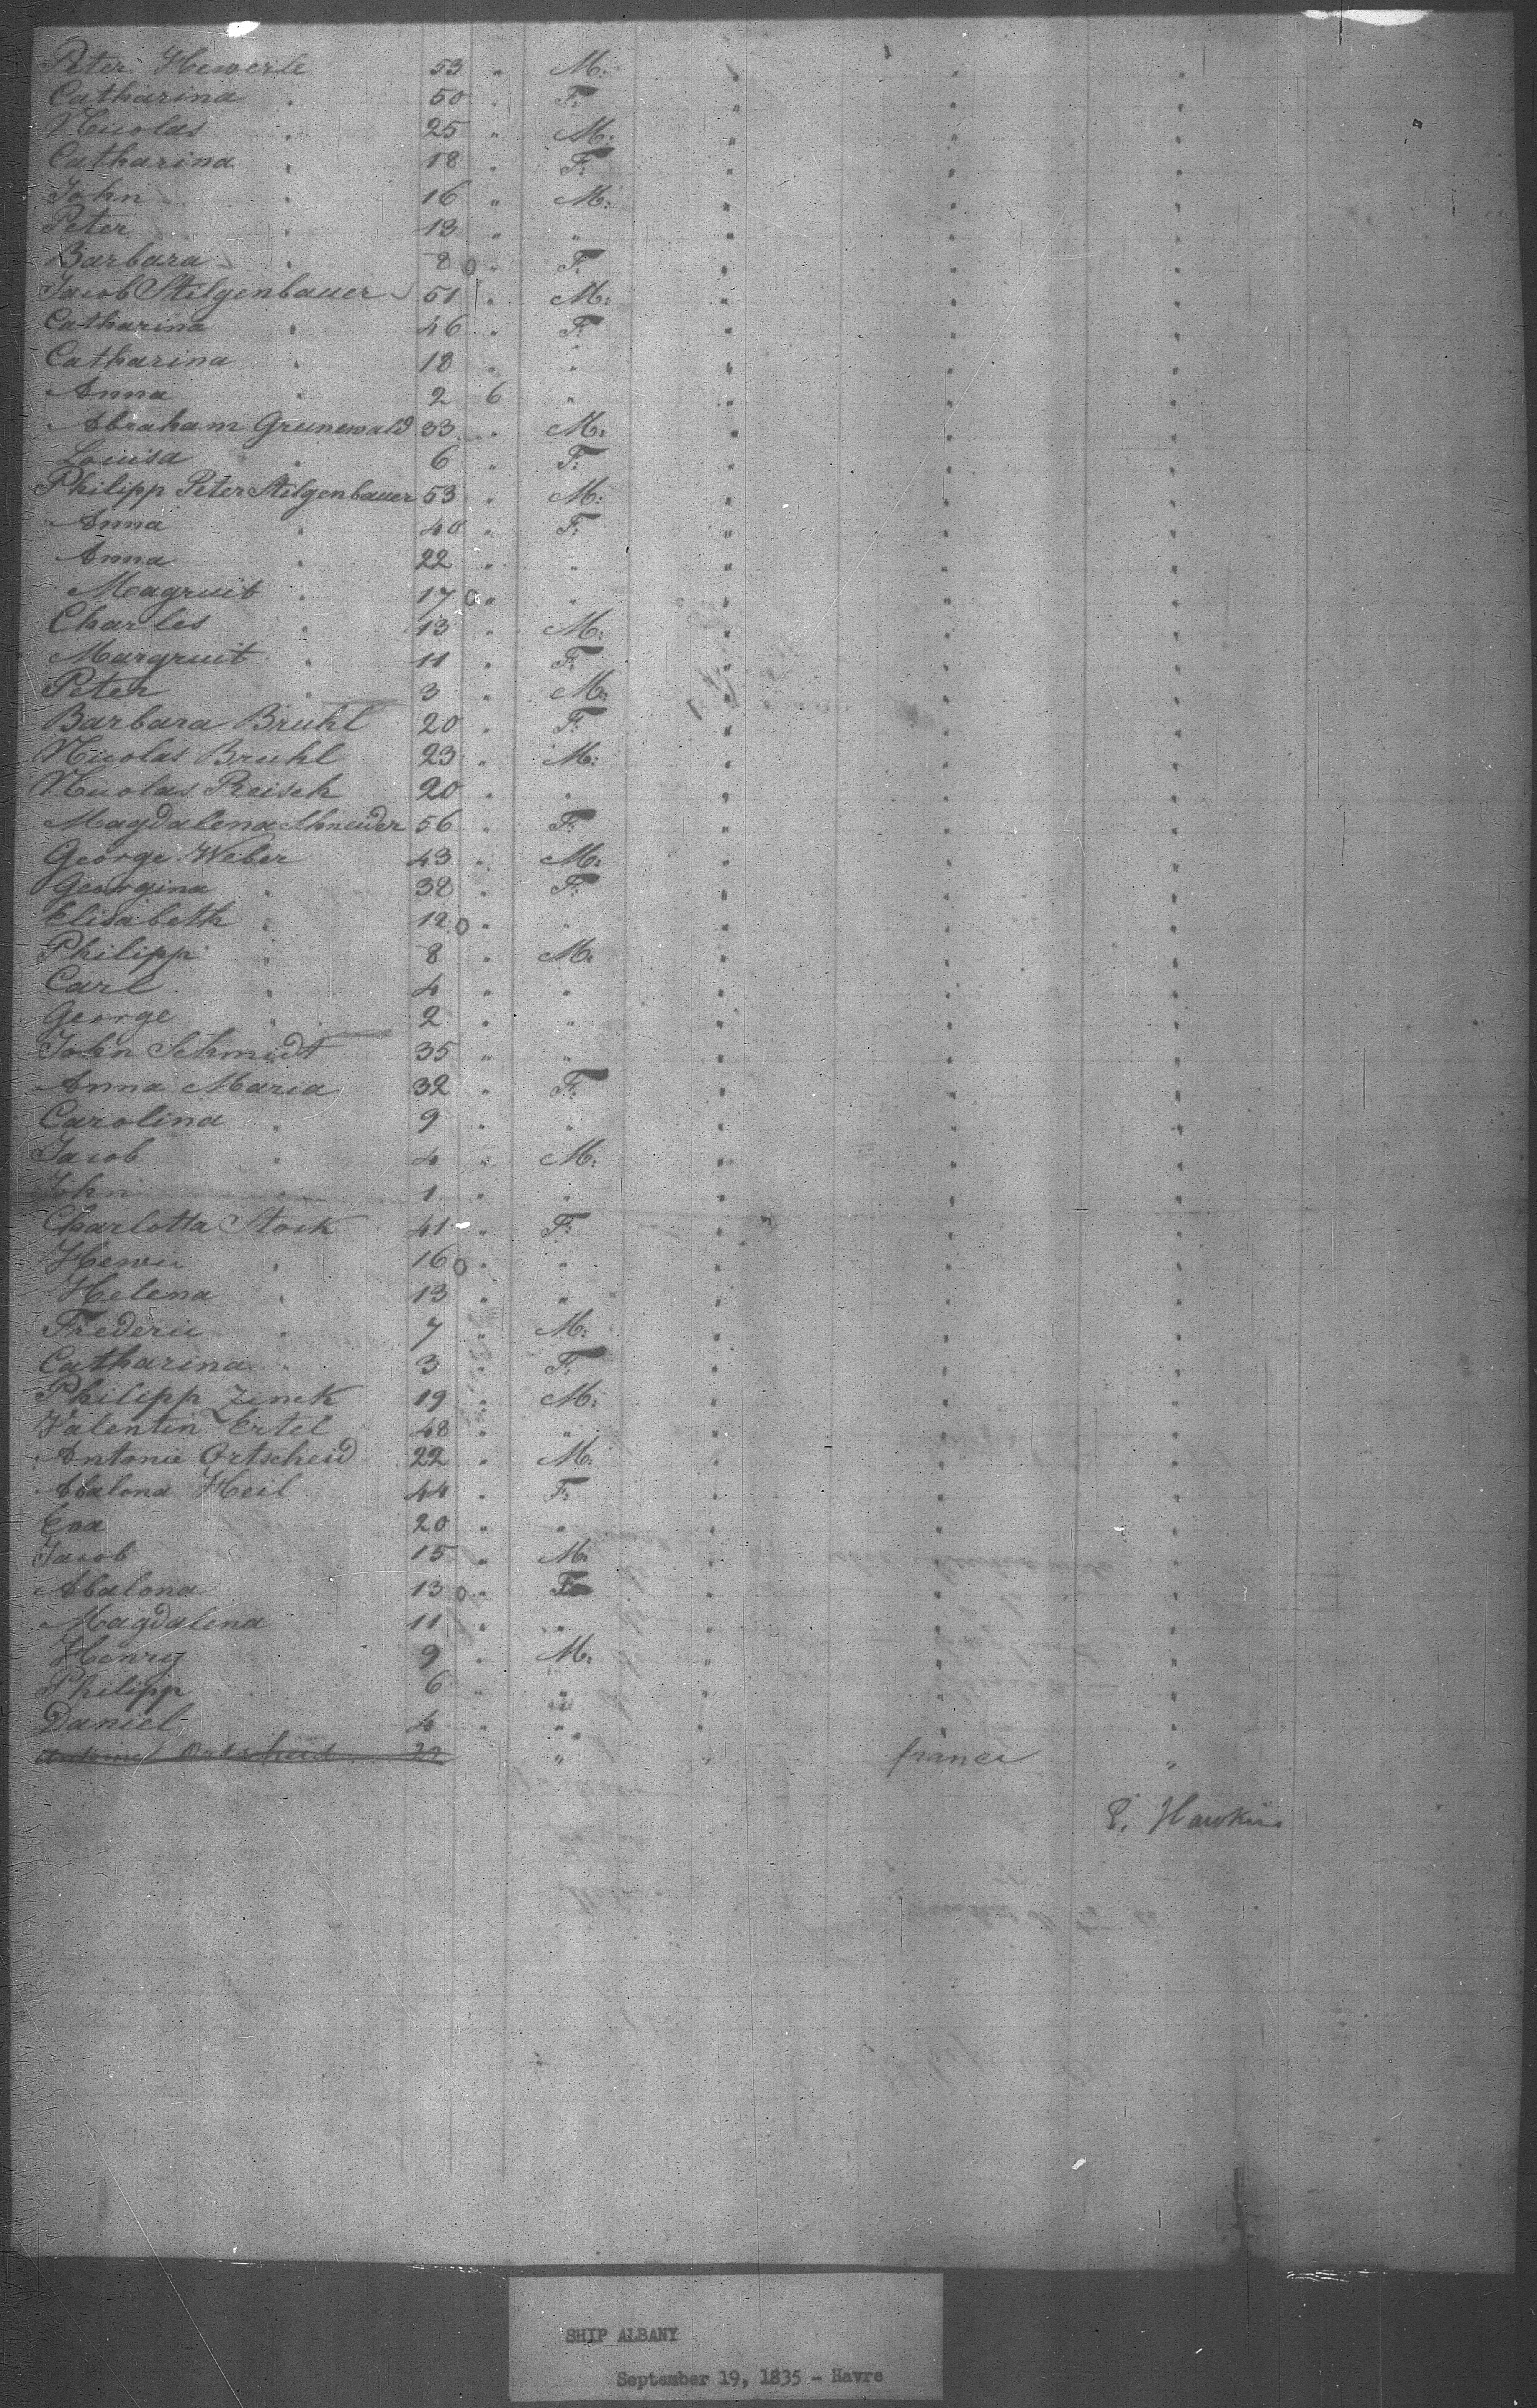 Peter Hewerle 53 " M: " " "
Catharina " 50 " F: " " "
Nicolas " 25 " M: " " "
Catharina " 18 " F: " " "
John " 16 " M: " " "
Peter " 13 " " " " "
Barbara " 8 0 " F: " " "
Jacob Stilgenbauer 51 " M: " " "
Catharina " 46 " F: " " "
Catharina " 18 " " " " "
Anna " 2 6 " " " "
Abraham Grunewald 33 " M: " " "
Louisa " 6 " F: " " "
Philipp Peter Stilgenbauer 53 " M: " " "
Anna " 40 " F: " " "
Anna " 22 " " " " "
Magruit " 17 0 " " " " "
Charles " 13 " M: " " "
Margruit " 11 " F: " " "
Peter " 3 " M: " " "
Barbara Bruhl 20 " F: " " "
Nicolas Bruhl 23 " M: " " "
Nicolas Reisch 20 " " " " "
Magdalena Shneider 56 " F: " " "
George Weber 43 " M: " " "
Georgina " 38 " F: " " "
Elisabeth " 12 0 " " " " "
Philipp " 8 " M: " " "
Carl " 4 " " " " "
George " 2 " " " " "
John Schmidt 35 " " " " "
Anna Maria 32 " F: " " "
Carolina " 9 " " " " "
Jacob " 4 " M: " " "
John " 1 " " " " "
Charlotta Stock 41 " F: " " "
16 0 " " " " "
Helena " 13 " " " " "
Frederic " 7 " M: " " "
Catharina " 3 " F: " " "
Philipp Zinck 19 " M: " " "
Valentin Ertel 48 " " " " "
Antonie Ortscheid 22 " M: " " "
Abalona Heil 44 " F: " " "
Eva 20 " " " " "
Jacob 15 " M: " " "
Abalona 13 0 " F: " " "
Magdalena 11 " " " " "
Henry 9 " M: " " "
Philipp 6 " " " " "
Daniel 4 " " " " "
Antoine Ortscheid 22 " " france "
E. Hawkins
SHIP ALBANY
September 19, 1835 - Havre